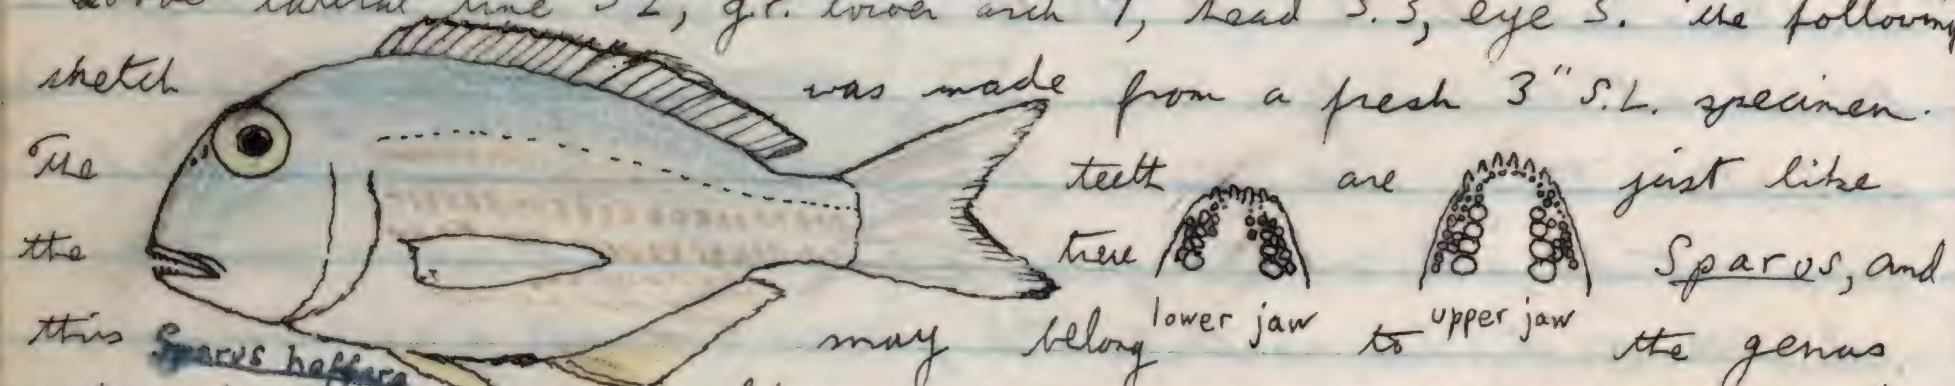 above lateral line 5 2, g.r. lower arch 7, head 3.3, eye 3. The following
sketch was made from a fresh 3" S.L. specimen.
The teeth are just like
the true Sparus, and
lower jaw upper jaw
this Sparus haffara may belong to the genus